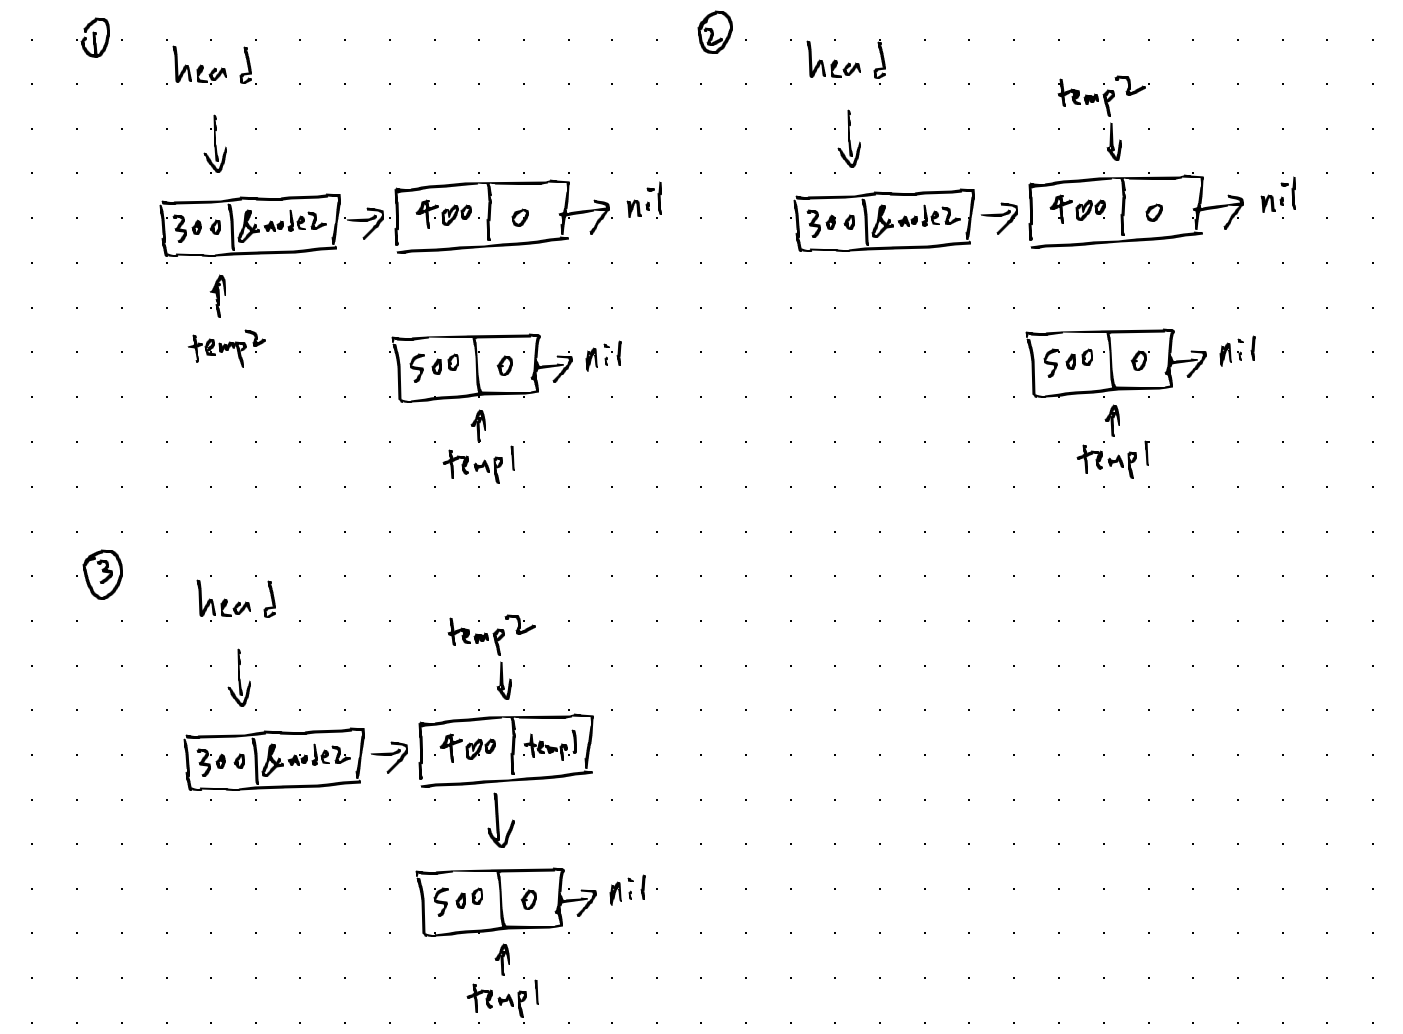 ①
head
300 &node2
400 0
nil
temp2
500 0
nil
temp1
②
head
temp2
300 &node2
400 0
nil
500 0
nil
temp1
③
head
temp2
300 &node2
400 temp1
500 0
nil
temp1